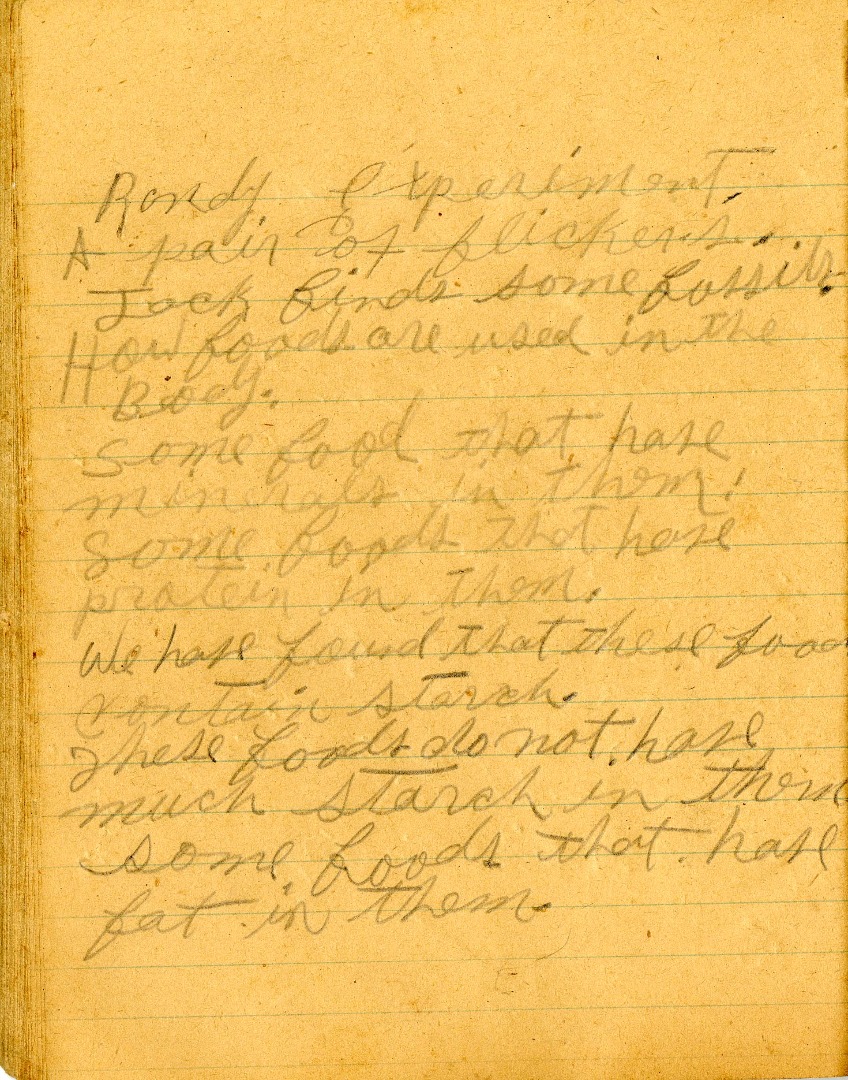 Randy experiment.
A pair of flickers.
Jack finds some fossils.
How foods are used in the
Body.
Some food that have
minerals in them.
Some foods that have
protein in them.
We have found that these food
contain starch.
These foods do not have
much starch in them
some foods that have
fat in them.